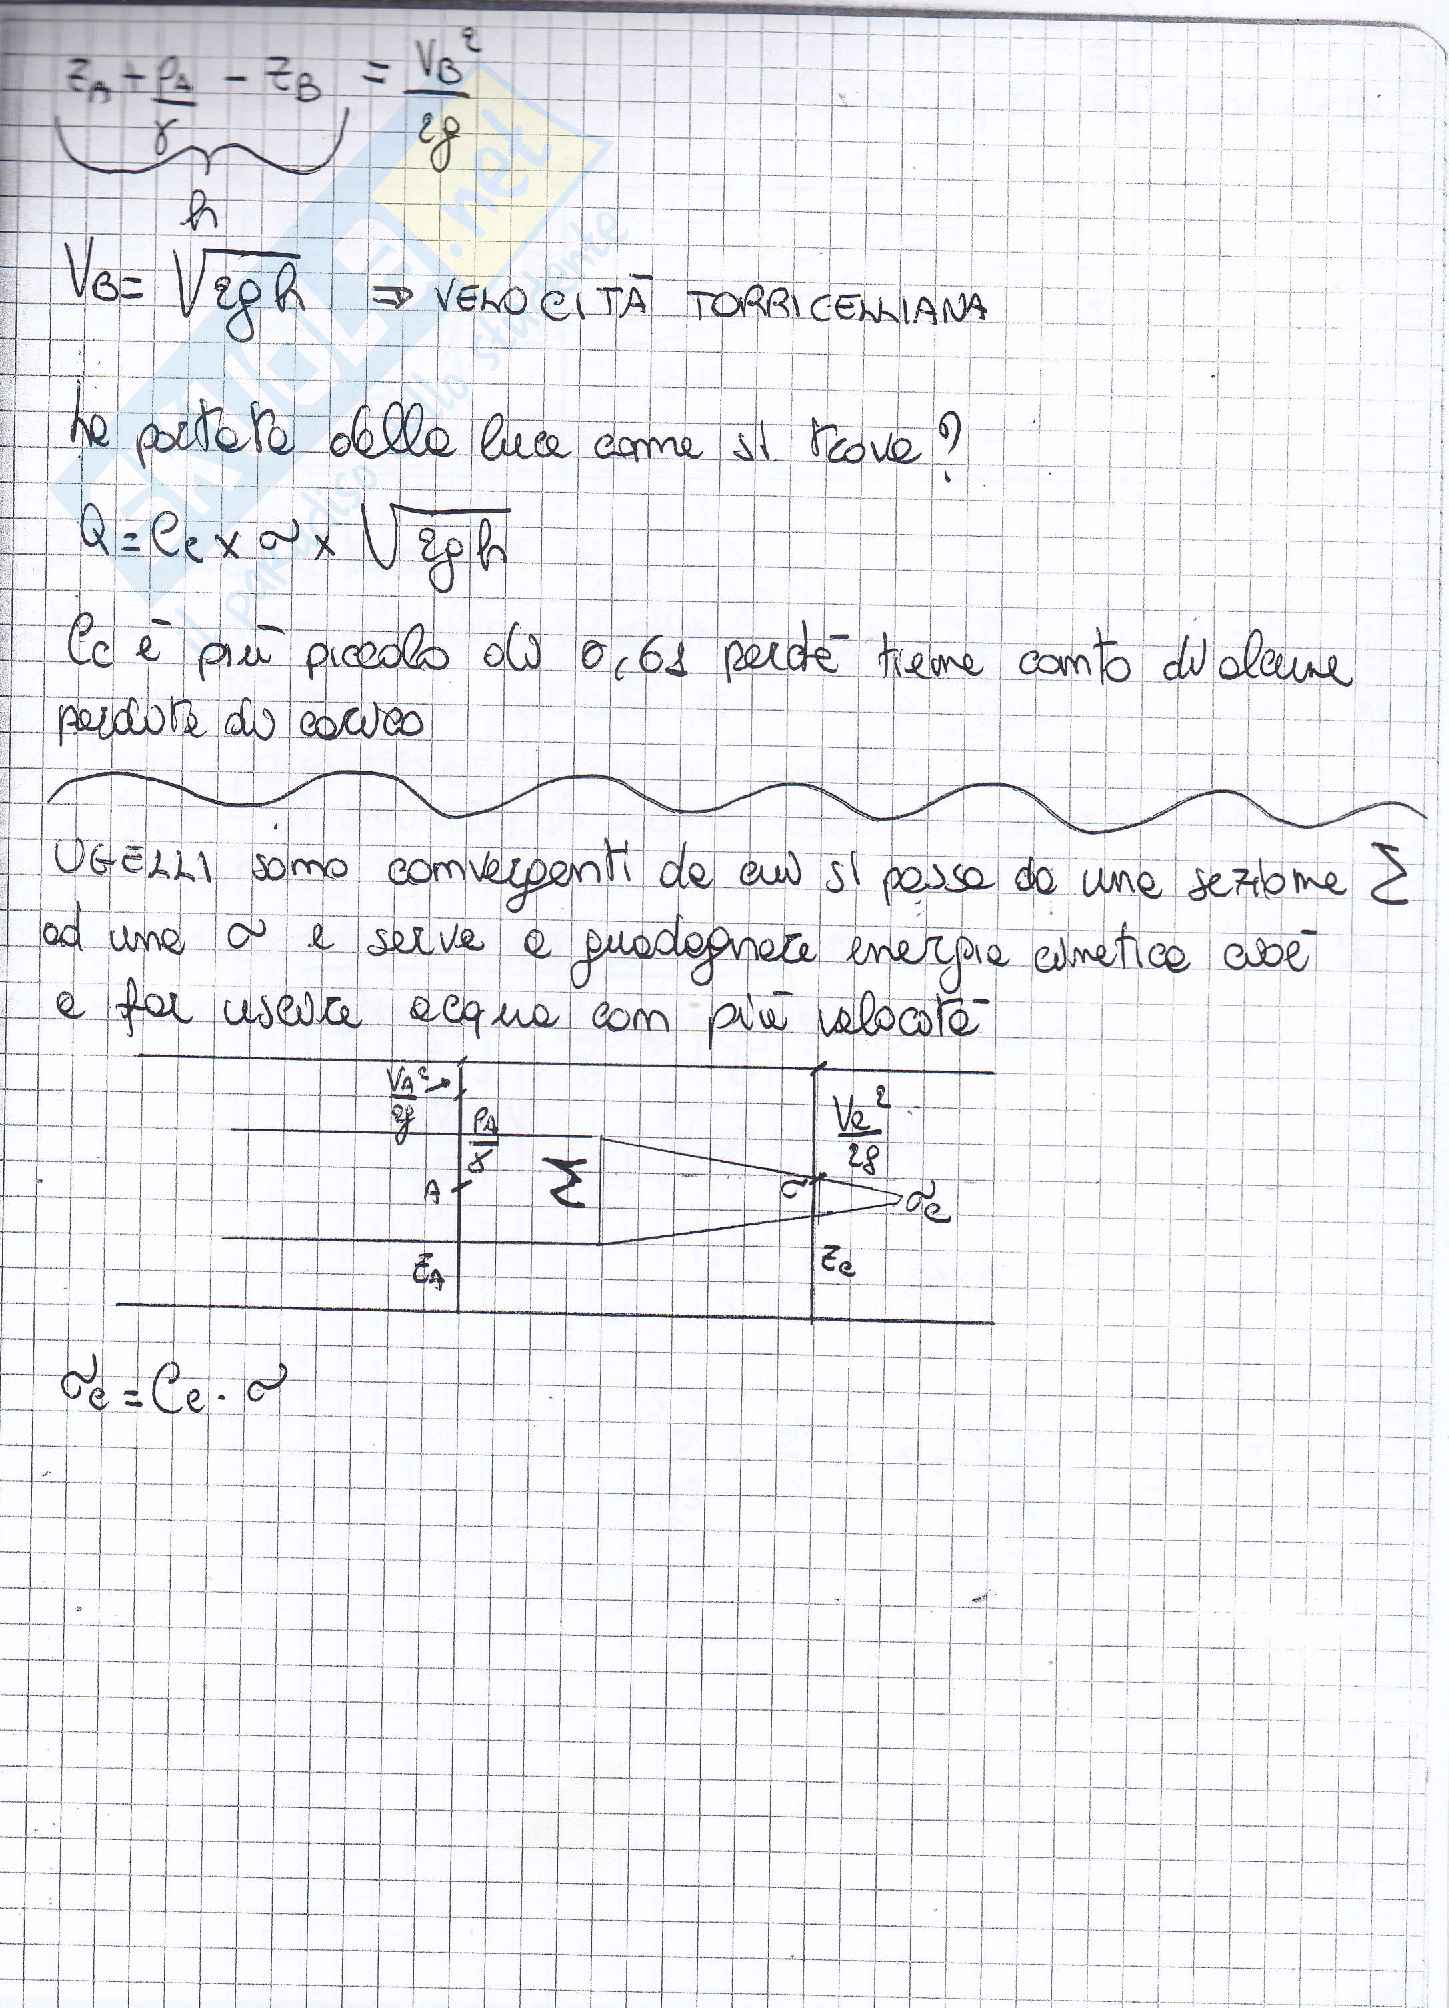 z_A + p_A/γ - z_B = V_B²/2g
h
V_B = √2gh ⇒ VELOCITÀ TORRICELLIANA
La portata della luce come si trova?
Q = Cc x σ x √2gh
Cc è più piccolo di 0,61 perchè tiene conto di alcune
perdite di carico
UGELLI sono convergenti da cui si passa da una sezione Σ
ad una σ e serve a guadagnare energia cinetica cioè
a far uscire acqua con più velocità
V_A²/2g
p_A/γ
Vc²/2g
A
Σ
σ
σc
z_A
zc
σc = Cc · σ
SKUOLA.net
il paradiso dello studente